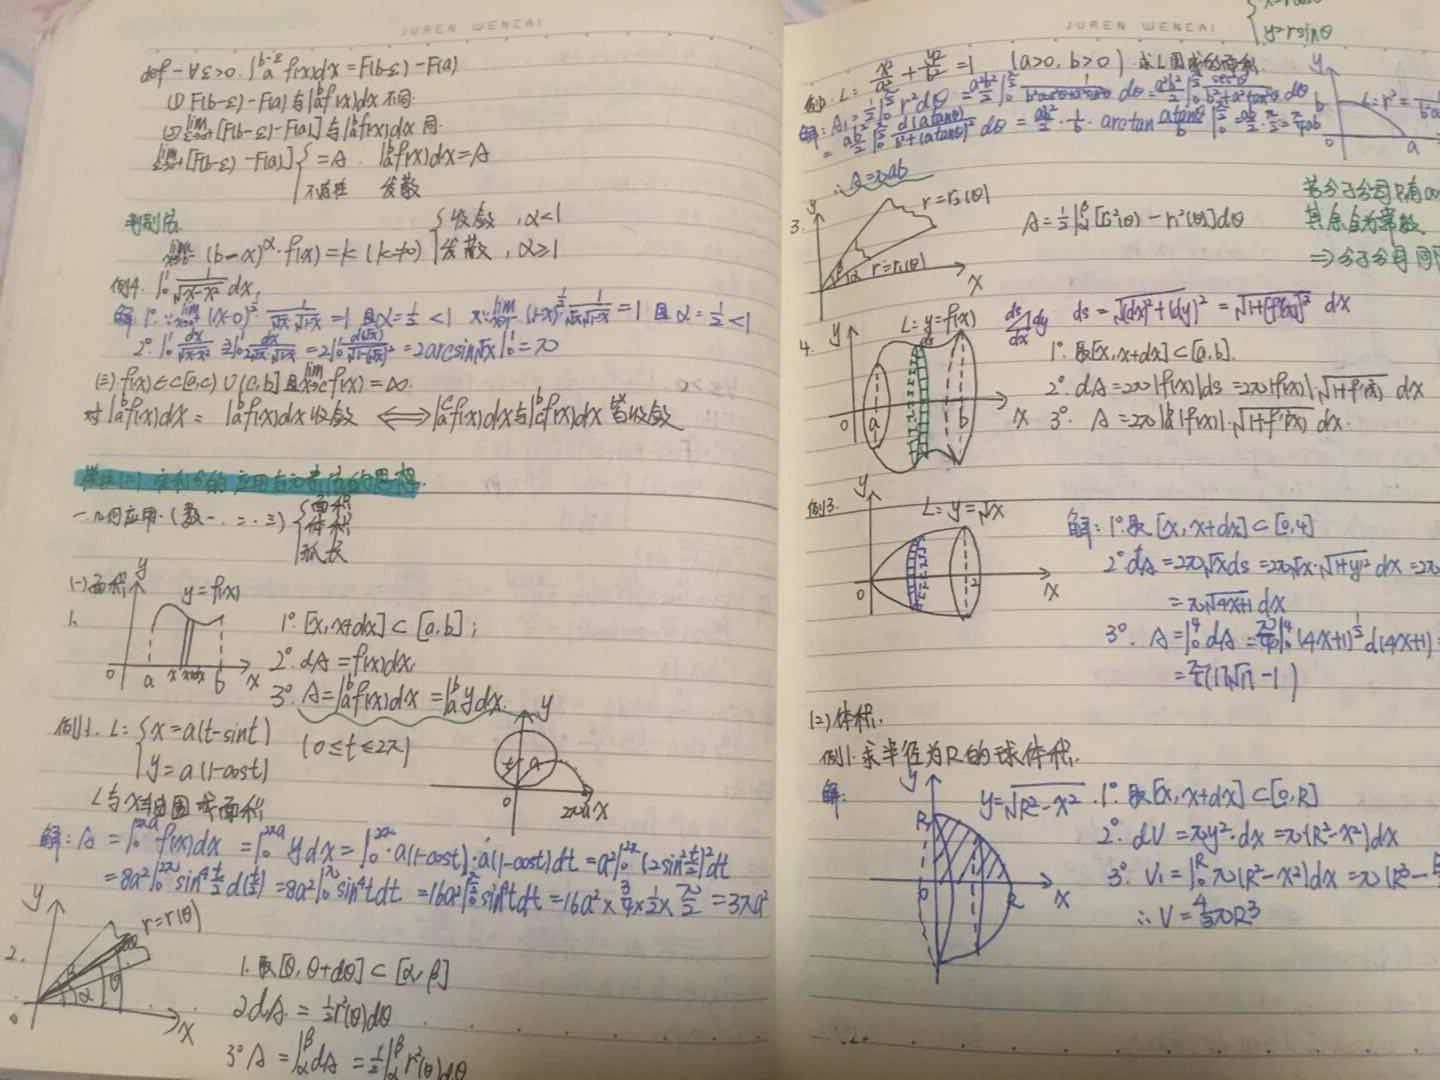 JUREN WENZAI
def - ∀ε>0. ∫_a^{b-ε} f(x)dx = F(b-ε) - F(a)
(1) F(b-ε) - F(a) 与 ∫_a^b f(x)dx 不同.
(2) lim_{ε→0+} [F(b-ε) - F(a)] 与 ∫_a^b f(x)dx 同.
lim_{ε→0+} [F(b-ε) - F(a)] { = A . ∫_a^b f(x)dx = A
不存在 发散
判别法. { 收敛 , α<1
(b-x)^α · f(x) = k (k≠0) { 发散 , α≥1
例4. ∫_0^1 1/√(x-x²) dx.
解 1°. ∵ lim (x-0)^{1/2} · 1/(√x√(1-x)) = 1 且 α = 1/2 < 1 lim (1-x)^{1/2} 1/(√x√(1-x)) = 1 且 α = 1/2 < 1
2°. ∫_0^1 dx/√(x-x²) = 2∫_0^1 dx/(2√x√(1-x)) = 2∫_0^1 d(√x)/√(1-(√x)²) = 2arcsin√x |_0^1 = π
(三) f(x)∈C[a,c)∪(c,b] 且 lim_{x→c} f(x) = ∞.
对 ∫_a^b f(x)dx = ∫_a^b f(x)dx 收敛 ⟺ ∫_a^c f(x)dx 与 ∫_c^b f(x)dx 皆收敛
定积分的应用 思想.
一. 几何应用. (数一. 二. 三) { 面积
体积
弧长
(一) 面积
1. y y=f(x) 0 a x x+dx b x
1°. [x, x+dx] ⊂ [a,b] ;
2°. dA = f(x)dx.
3°. A = ∫_a^b f(x)dx = ∫_a^b y dx.
例1. L: { x = a(t-sint)
y = a(1-cost) (0≤t≤2π)
y t a 0 2πa x
L与x轴围成面积
解: A = ∫_0^{2πa} f(x)dx = ∫_0^{2πa} y dx = ∫_0^{2π} a(1-cost) · a(1-cost)dt = a²∫_0^{2π} (2sin²t/2)²dt
= 8a²∫_0^{2π} sin⁴ t/2 d(t/2) = 8a²∫_0^π sin⁴t dt = 16a²∫_0^{π/2} sin⁴t dt = 16a² × 3/4 × 1/2 × π/2 = 3πa²
2. y r=r(θ) α θ 0 x
1. 取[θ, θ+dθ] ⊂ [α, β]
2 dA = ½r²(θ)dθ
3° A = ∫_α^β dA = ½∫_α^β r²(θ)dθ
JUREN WENZAI
y=rsinθ
L: x²/a² + y²/b² = 1 (a>0, b>0) 求L围成的面积.
解: A₁ = ½∫_0^{π/2} r²dθ = a²b²/2 ∫_0^{π/2} dθ = a²b²/2 ∫_0^{π/2} sec²θ/(b²+a²tan²θ) dθ
= ab²/2 ∫_0^{π/2} d(atanθ)/(b²+(atanθ)²) dθ = ab²/2 · 1/b · arctan atanθ/b |_0^{π/2} = ab/2 · π/2 = π/4 ab
∴ A = πab
y b 0 a
3. y r=r₂(θ) r=r₁(θ) β α x
A = ½∫_α^β [r₂²(θ) - r₁²(θ)]dθ
若分子分母只有
其余全为常数
⇒ 分子分母同
4. y L: y=f(x) 0 a b x
ds dy dx ds = √((dx)²+(dy)²) = √(1+[f'(x)]²) dx
1°. 取[x, x+dx] ⊂ [a,b].
2°. dA = 2π|f(x)|ds = 2π|f(x)|·√(1+f'²(x)) dx
3°. A = 2π∫_a^b |f(x)|·√(1+f'²(x)) dx.
例3. y L: y=√x 0 2 x
解: 1°. 取[x, x+dx] ⊂ [0,4]
2°. dA = 2π√x ds = 2π√x·√(1+y'²) dx = 2π
= π√(4x+1) dx
3°. A = ∫_0^4 dA = π/4 ∫_0^4 (4x+1)^{1/2} d(4x+1) =
= π/6 (17√17 - 1)
(2) 体积.
例1. 求半径为R的球体积.
解: y R y=√(R²-x²) 0 R x
1°. 取[x, x+dx] ⊂ [0,R]
2°. dV = πy²·dx = π(R²-x²)dx
3°. V₁ = ∫_0^R π(R²-x²)dx = π(R³-
∴ V = 4/3 πR³